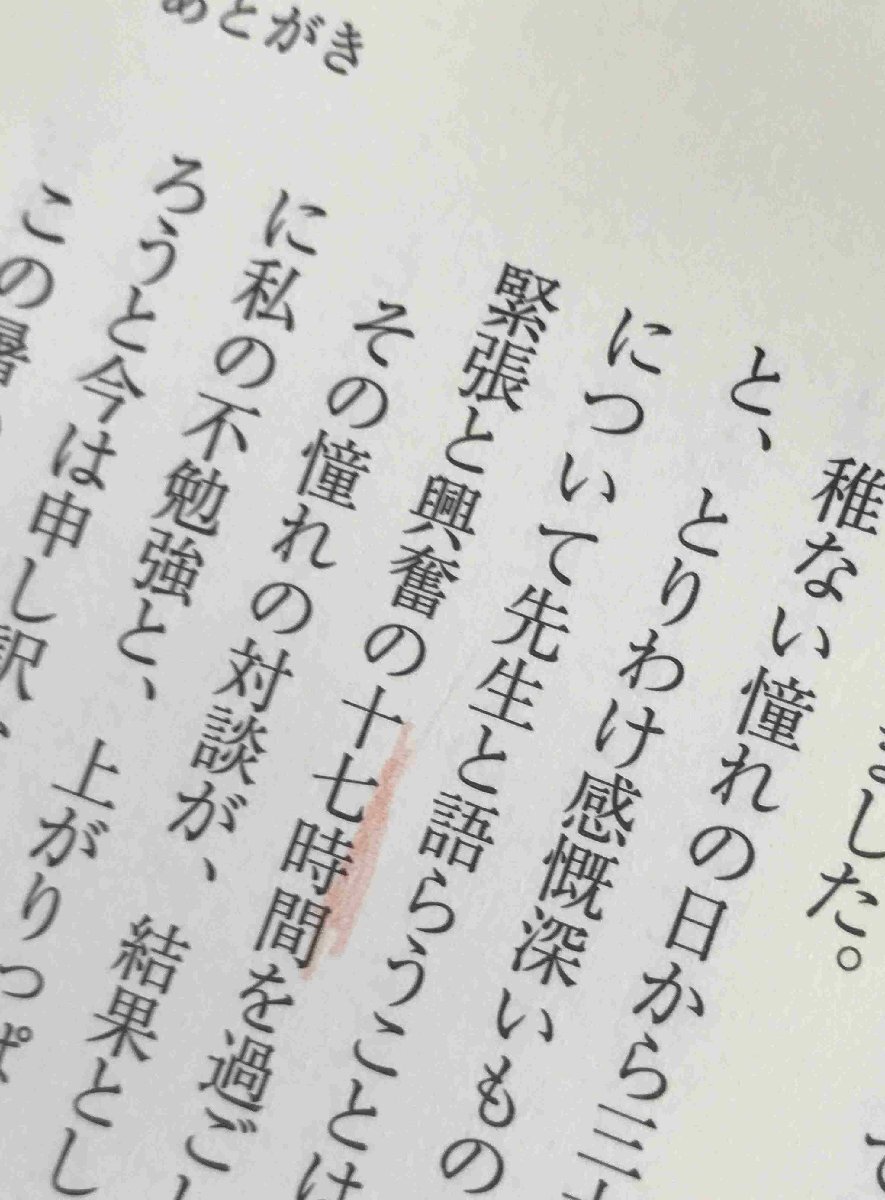 あとがき
ました。
稚ない憧れの日から三十
と、とりわけ感慨深いもの
について先生と語らうことは
緊張と興奮の十七時間を過ごし
その憧れの対談が、結果とし
に私の不勉強と、上がりっぱ
ろうと今は申し訳
この